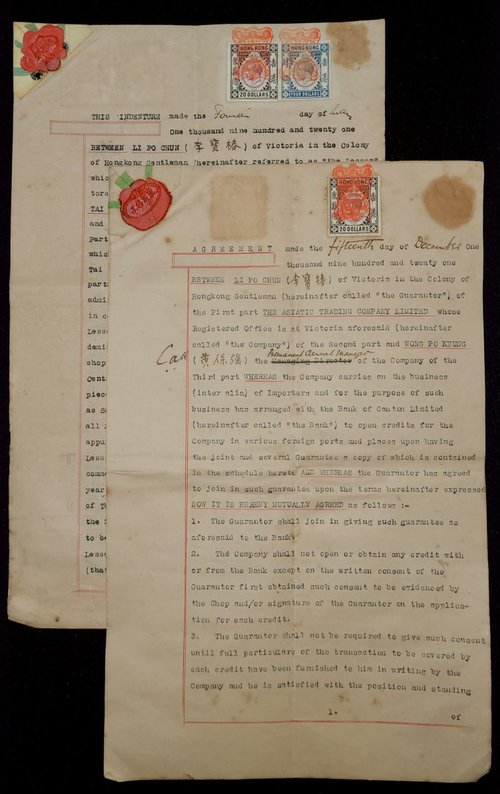 HONG KONG
20 DOLLARS
HONG KONG
FOUR DOLLARS
THIS INDENTURE made the day of
One thousand nine hundred and twenty one
BETWEEN LI PO CHUN (李寶椿) of Victoria in the Colony
of Hongkong Gentleman (hereinafter referred to as "the Lessor"
whic
tors
TAI
and
Part
which
Tai
part
admi
in c
Lesse
demis
shop
Cent
piec
as Se
all
appu
Less
comm
year
of T
the 2
to be
Lesse
(tha
HONG KONG
20 DOLLARS
AGREEMENT made the fifteenth day of December One
thousand nine hundred and twenty one
BETWEEN LI PO CHUN (李寶椿) of Victoria in the Colony of
Hongkong Gentleman (hereinafter called "the Guarantor") of
the First part THE ASIATIC TRADING COMPANY LIMITED whose
Registered Office is at Victoria aforesaid (hereinafter
called "the Company") of the Second part and WONG PO KEUNG
Permanent General Manager
(黄保強) the Managing Director of the Company of the
Third part WHEREAS the Company carries on the business
(inter alia) of Importers and for the purpose of such
business has arranged with the Bank of Canton Limited
(hereinafter called "the Bank") to open credits for the
Company in various foreign ports and places upon having
the joint and several Guarantee a copy of which is contained
in the schedule hereto AND WHEREAS the Guarantor has agreed
to join in such guarantee upon the terms hereinafter expressed
NOW IT IS HEREBY MUTUALLY AGREED as follows :-
1. The Guarantor shall join in giving such guarantee as
aforesaid to the Bank.
2. The Company shall not open or obtain any credit with
or from the Bank except on the written consent of the
Guarantor first obtained such consent to be evidenced by
the Chop and/or signature of the Guarantor on the applica-
tion for each credit.
3. The Guarantor shall not be required to give such consent
until full particulars of the transaction to be covered by
each credit have been furnished to him in writing by the
Company and he is satisfied with the position and standing
1.
of